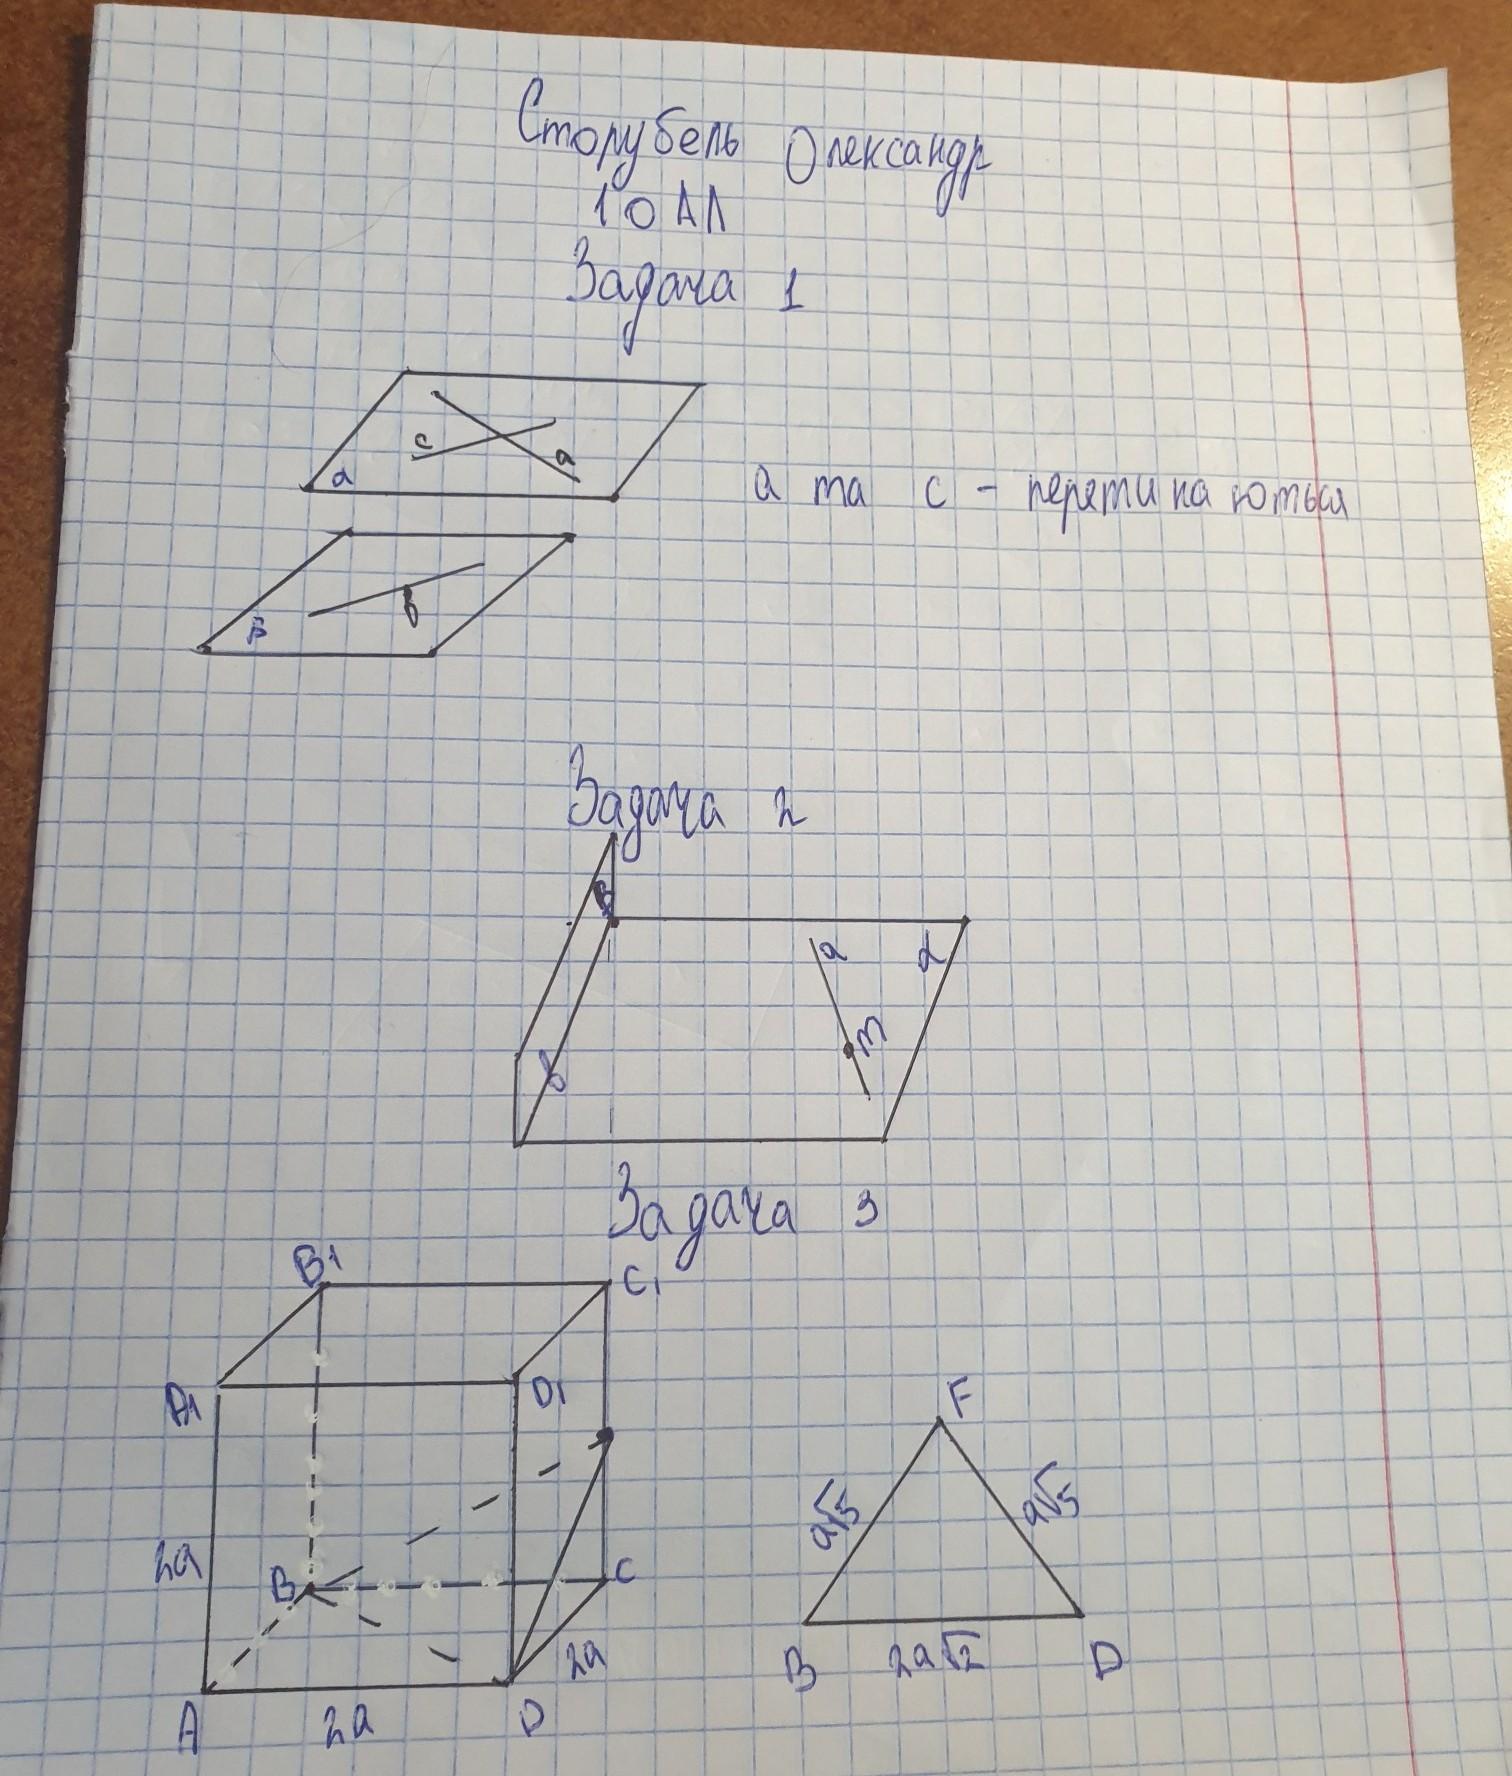 Сторубель Олександр
10 АЛ
Задача 1
c a
a
a та c - перетинаються
β b
Задача 2
β
a α
m
b
Задача 3
B1 C1
A1 D1
F
a√5 a√5
2a
B C
2a
B 2a√2 D
A 2a D